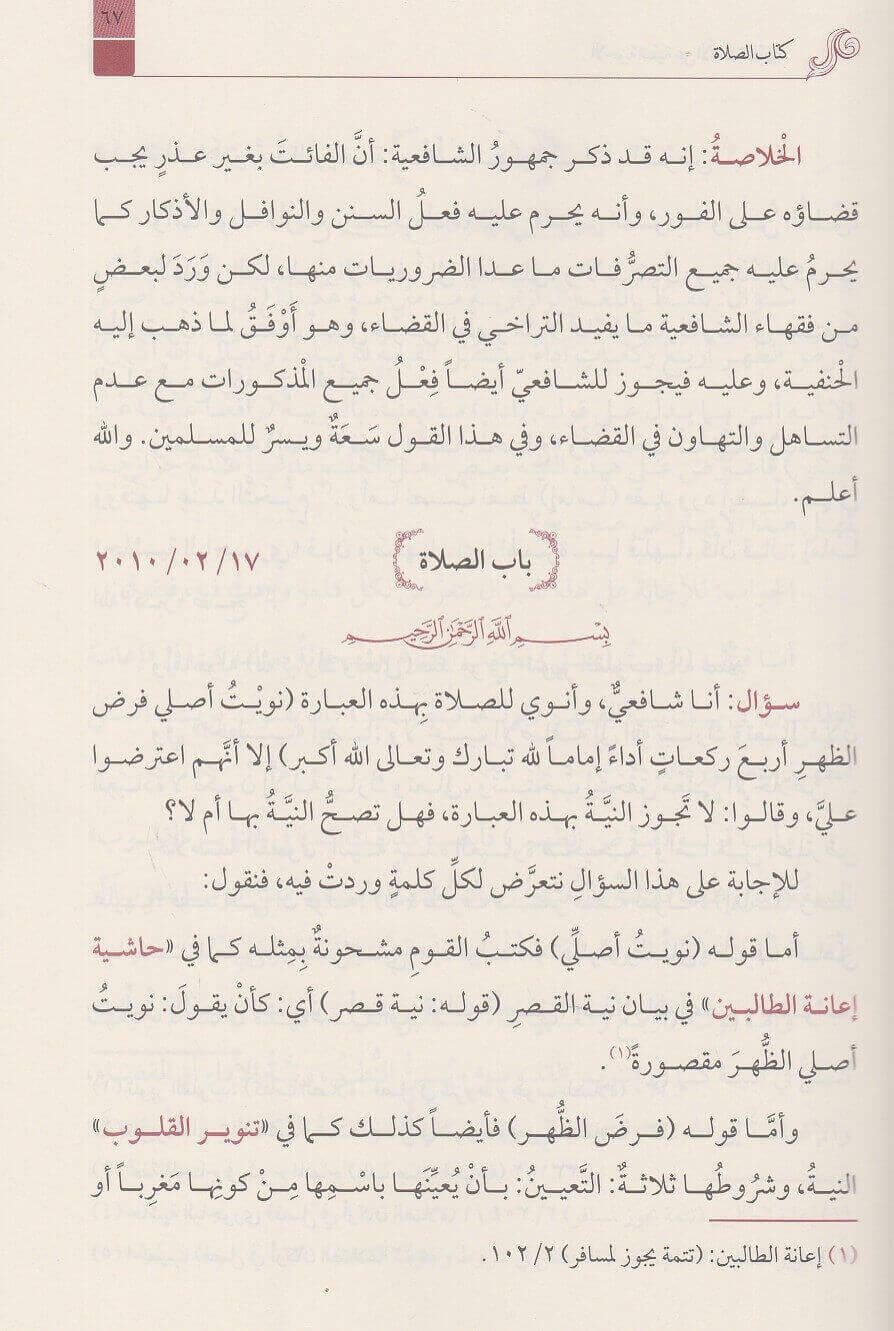 ٦٧
كتاب الصلاة
الْخلاصةُ: إنه قد ذكر جمهورُ الشافعية: أنَّ الفائتَ بغير عذرٍ يجب
قضاؤه على الفور، وأنه يحرم عليه فعلُ السنن والنوافل والأذكار كما
يحرمُ عليه جميع التصرُّفات ما عدا الضروريات منها، لكن وَرَدَ لبعضٍ
من فقهاء الشافعية ما يفيد التراخي في القضاء، وهو أَوْفَقُ لما ذهب إليه
الْحنفية، وعليه فيجوز للشافعيّ أيضاً فِعْلُ جميع الْمذكورات مع عدم
التساهل والتهاون في القضاء، وفي هذا القول سَعَةٌ ويسرٌ للمسلمين. والله
أعلم.
باب الصلاة ٢٠١٠/٠٢/١٧
بِسْمِ ٱللَّهِ ٱلرَّحْمَٰنِ ٱلرَّحِيمِ
سؤال: أنا شافعيٌّ، وأنوي للصلاة بِهذه العبارة (نويْتُ أصلي فرض
الظهرِ أربعَ ركعاتٍ أداءً إماماً لله تبارك وتعالى الله أكبر) إلا أنَّهم اعترضوا
عليَّ، وقالوا: لا تَجوز النيَّةُ بهذه العبارة، فهل تصحُّ النيَّةُ بها أم لا؟
للإجابة على هذا السؤالِ نتعرَّض لكلِّ كلمةٍ وردتْ فيه، فنقول:
أما قوله (نويتُ أصلِّي) فكتبُ القومِ مشحونةٌ بِمثله كما في «حاشية
إعانة الطالبين» في بيان نية القصرِ (قوله: نية قصر) أي: كأنْ يقولَ: نويتُ
أصلي الظُّهرَ مقصورةً(١).
وأمَّا قوله (فرضَ الظُّهر) فأيضاً كذلك كما في «تنوير القلوب»
النيةُ، وشروطُها ثلاثةٌ: التَّعيينُ: بأنْ يُعيِّنَها باسْمِها مِنْ كونِها مَغرِباً أو
(١) إعانة الطالبين: (تتمة يجوز لمسافر) ١٠٢/٢.